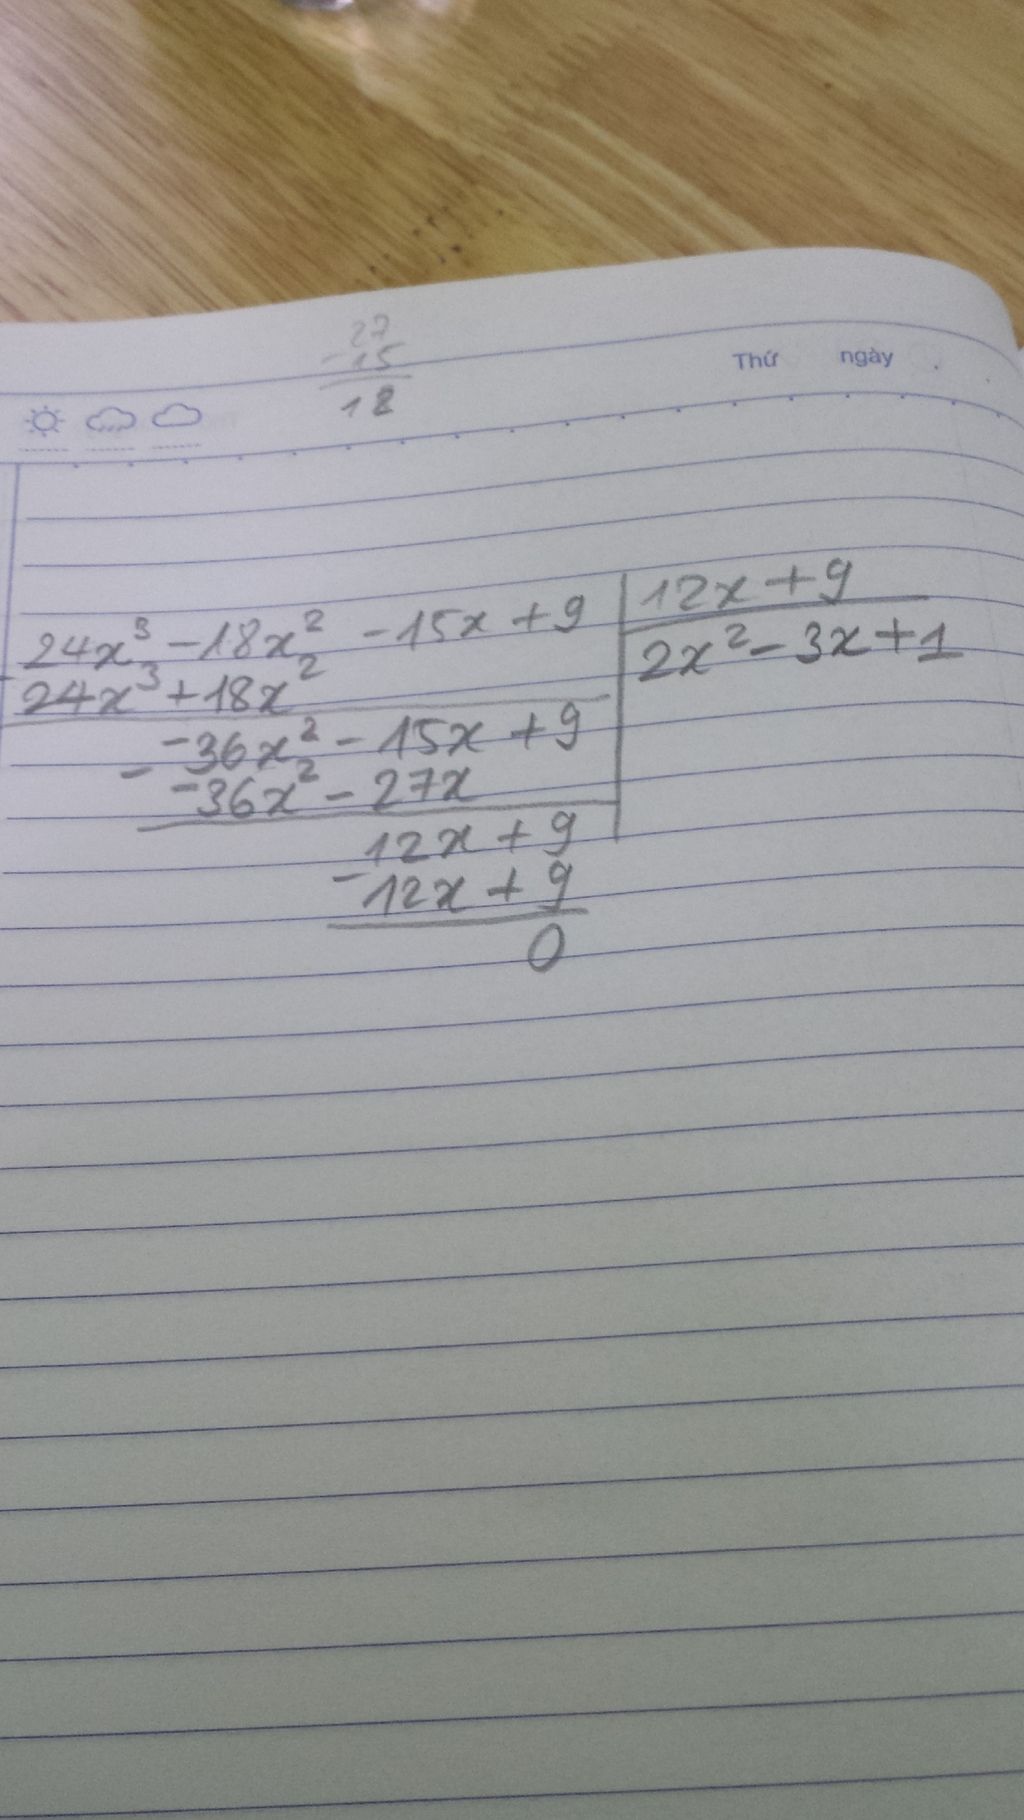 27
- 15
18
Thứ ngày
24x³ - 18x² - 15x + 9 | 12x + 9
- 24x³ + 18x² | 2x² - 3x + 1
-36x² - 15x + 9
- -36x² - 27x
12x + 9
- 12x + 9
0